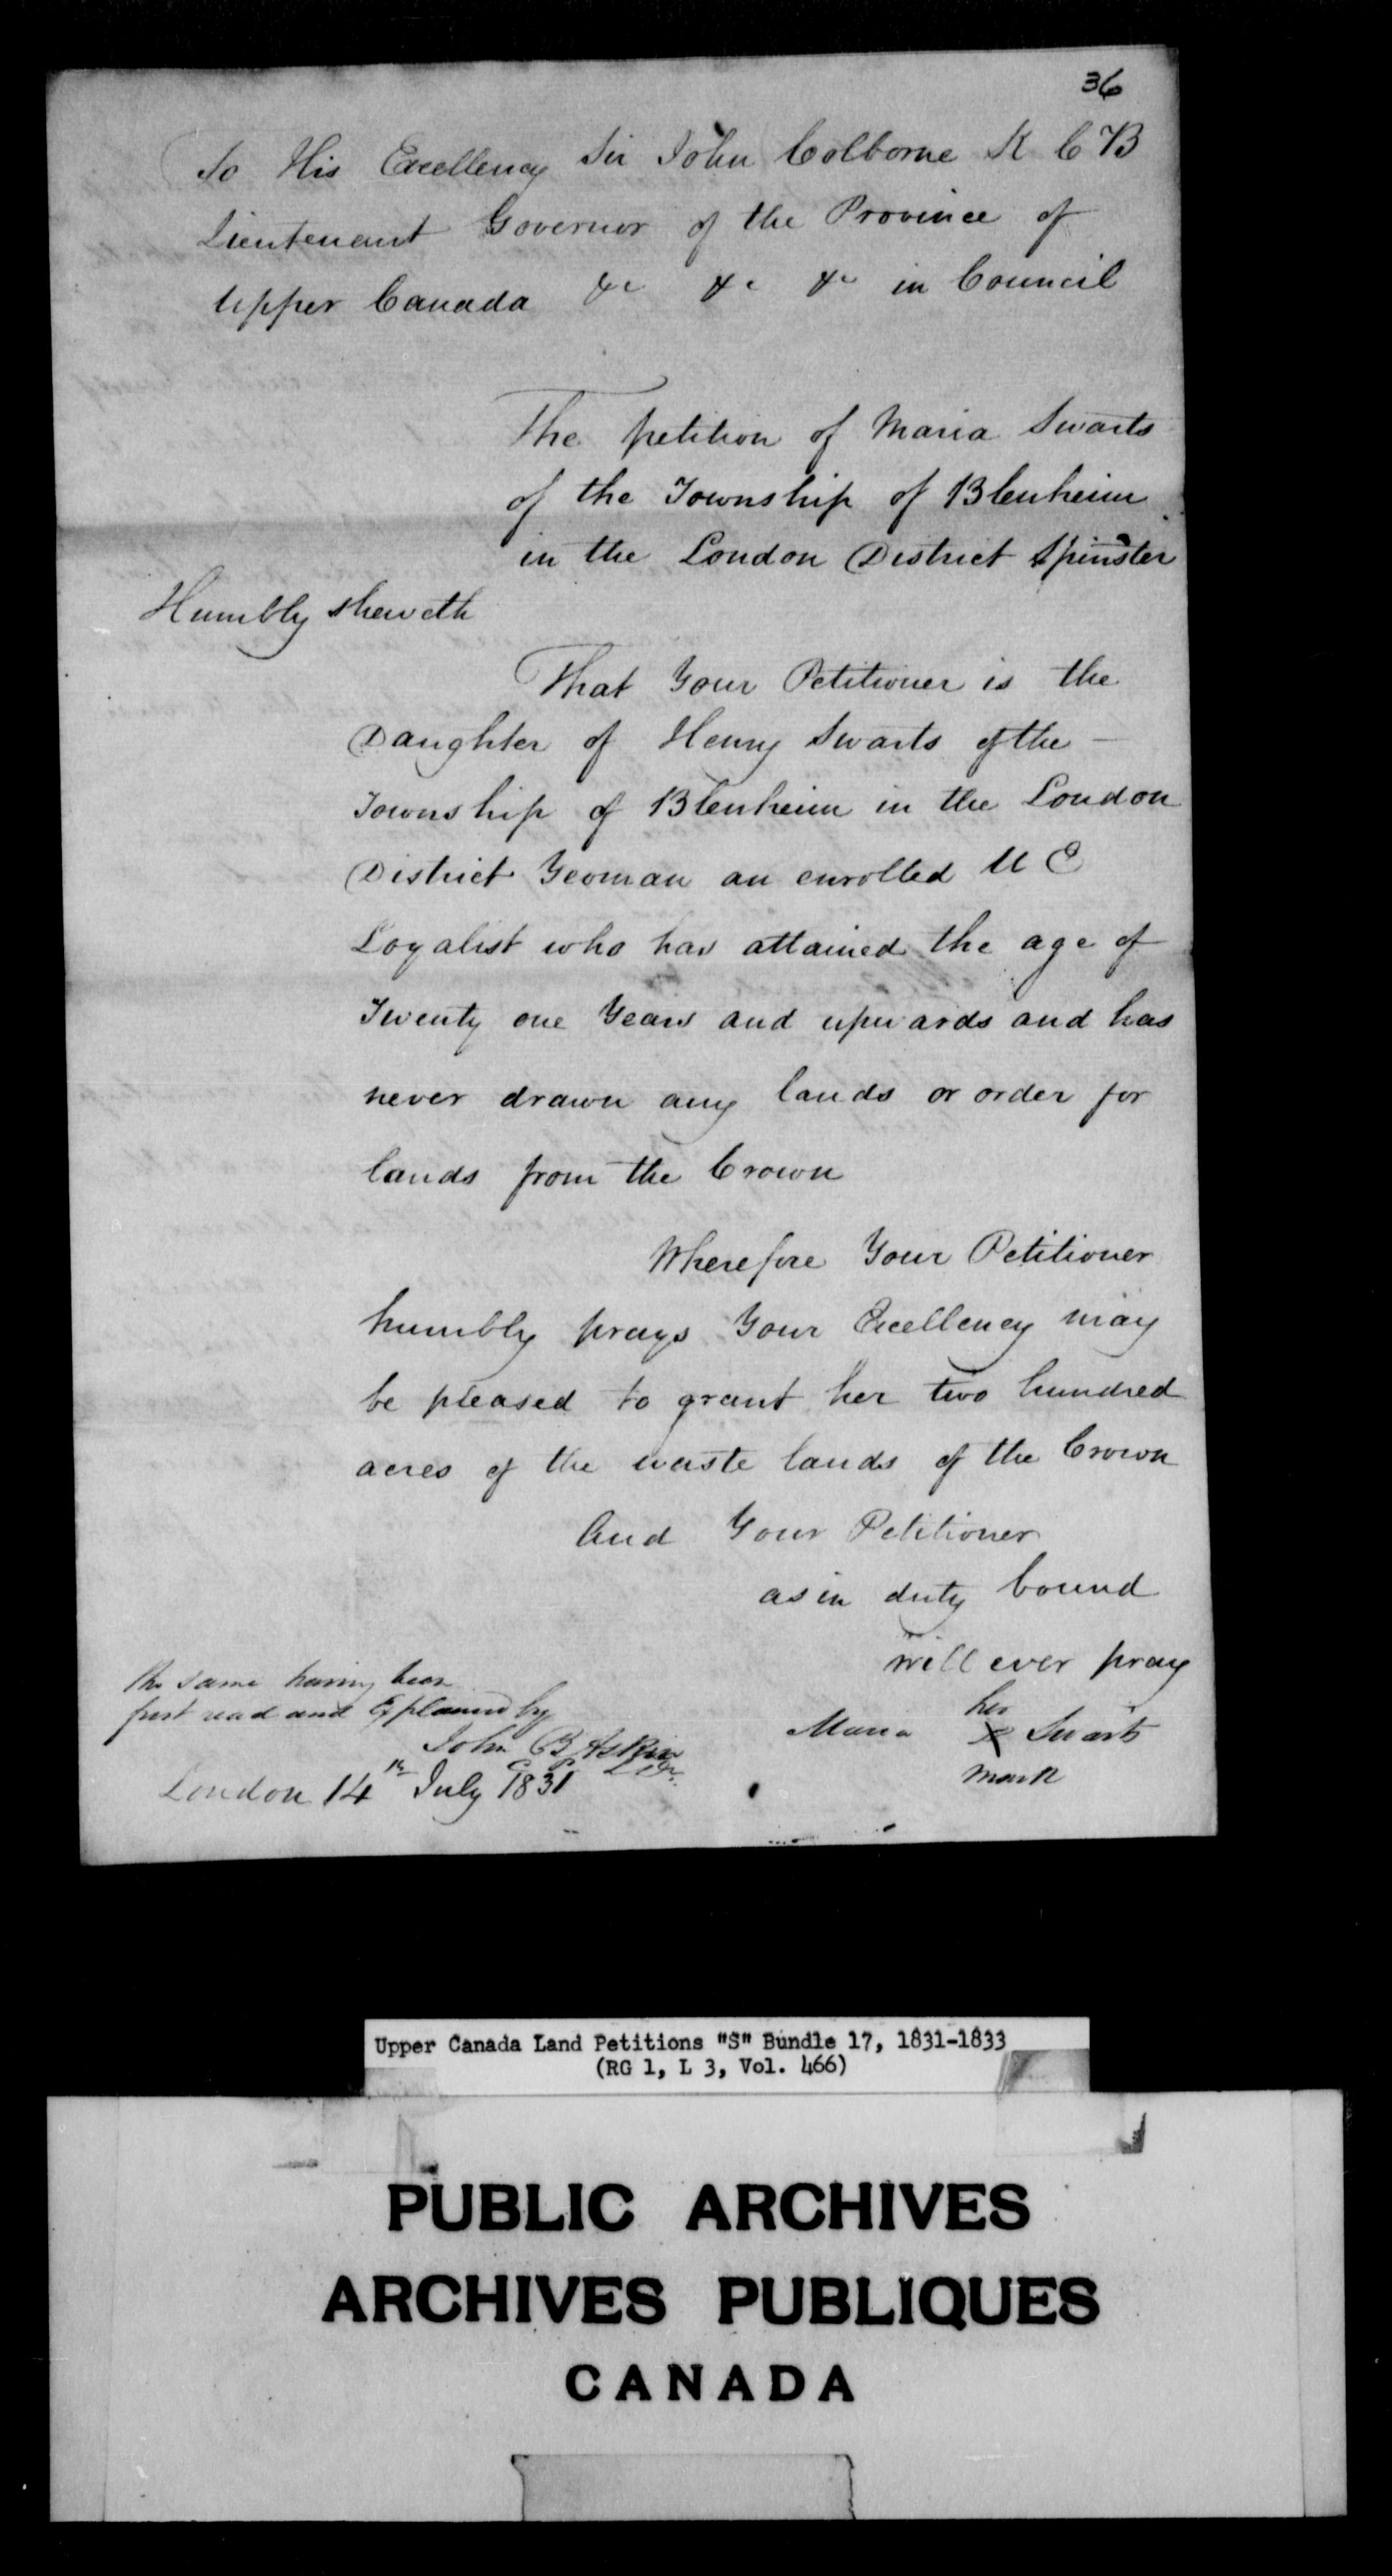 36
To His Excellency Sir John Colborne K C B
Lieutenant Governor of the Province of
Upper Canada &c &c &c in Council
The petition of Maria Swarts
of the Township of Blenheim
in the London District Spinster
Humbly sheweth
That Your Petitioner is the
Daughter of Henry Swarts of the —
Township of Blenheim in the London
District Yeoman an enrolled U E
Loyalist who has attained the age of
Twenty one Years and upwards and has
never drawn any lands or order for
lands from the Crown
Wherefore Your Petitioner
humbly prays Your Excellency may
be pleased to grant her two hundred
acres of the waste lands of the Crown
And Your Petitioner
as in duty bound
will ever pray
the same having been
first read and Explained by
John B Askin
C P L D.
London 14th July 1831
her
Maria X Swarts
mark
Upper Canada Land Petitions "S" Bundle 17, 1831-1833
(RG 1, L 3, Vol. 466)
PUBLIC ARCHIVES
ARCHIVES PUBLIQUES
CANADA